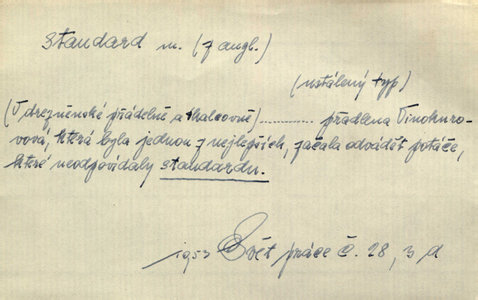 standard m. (z angl.)
(ustálený typ)
(V drezněnské přádelně a tkalcovně) .......... přadlena Vinokuro-
vová, která byla jednou z nejlepších, začala odvádět potáče,
které neodpovídaly standardu.
1953 Svět práce č. 28, 3 d